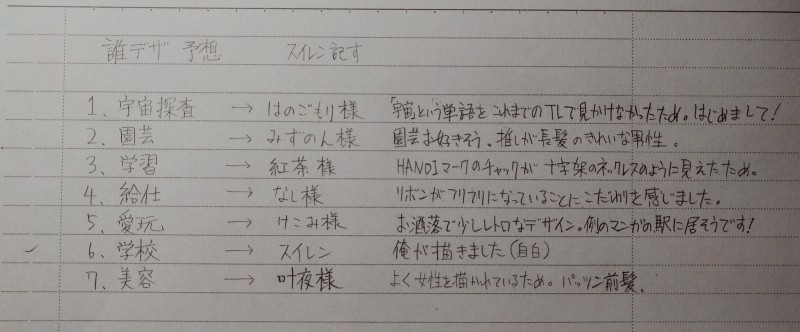 誰デザ 予想 スイレン記す
1、宇宙探査 → はのごもり様 「宇宙」という単語をこれまでのTLで見かけなかったため。はじめまして!
2、園芸 → みずのん様 園芸お好きそう。推しが長髪のきれいな男性。
3、学習 → 紅茶様 HANDIマークのチャックが十字架のネックレスのように見えたため。
4、給仕 → なし様 リボンがフリフリになっていることにこだわりを感じました。
5、愛玩 → けこみ様 お洒落で少しレトロなデザイン。例のマンガの駅に居そうです!
6、学校 → スイレン 俺が描きました(自白)
7、美容 → 叶夜様 よく女性を描かれているため。パッツン前髪。